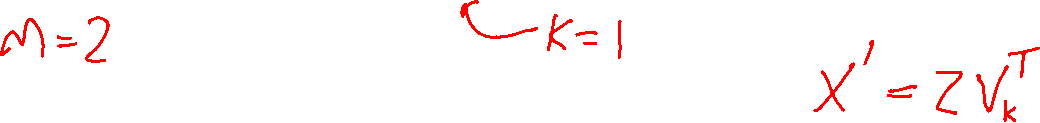 M=2
K=1
X' = Z V_k^T